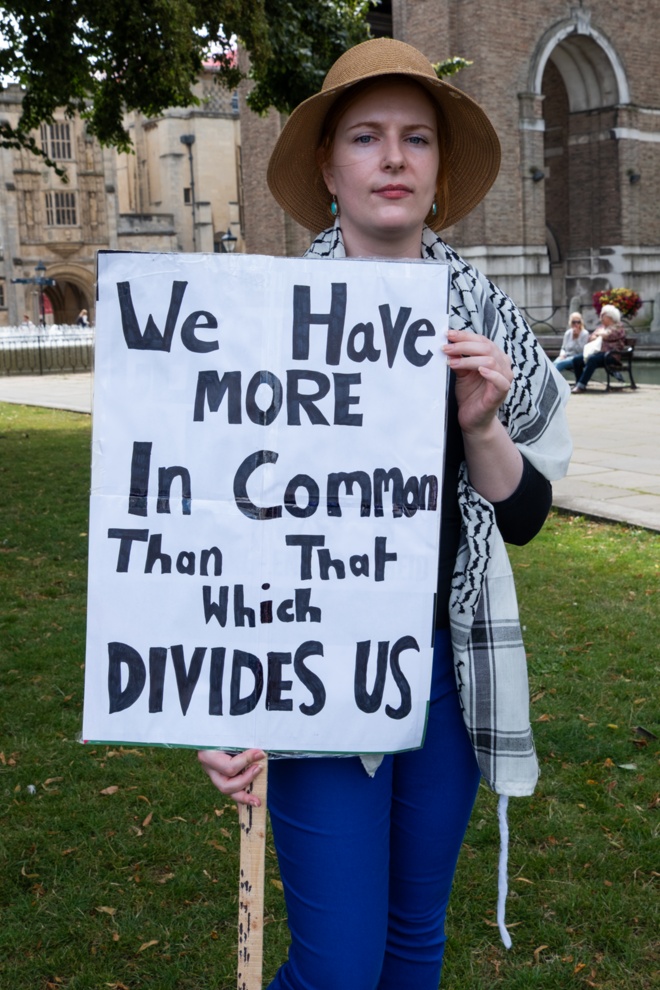 We Have
MORE
In Common
Than That
Which
DIVIDES US